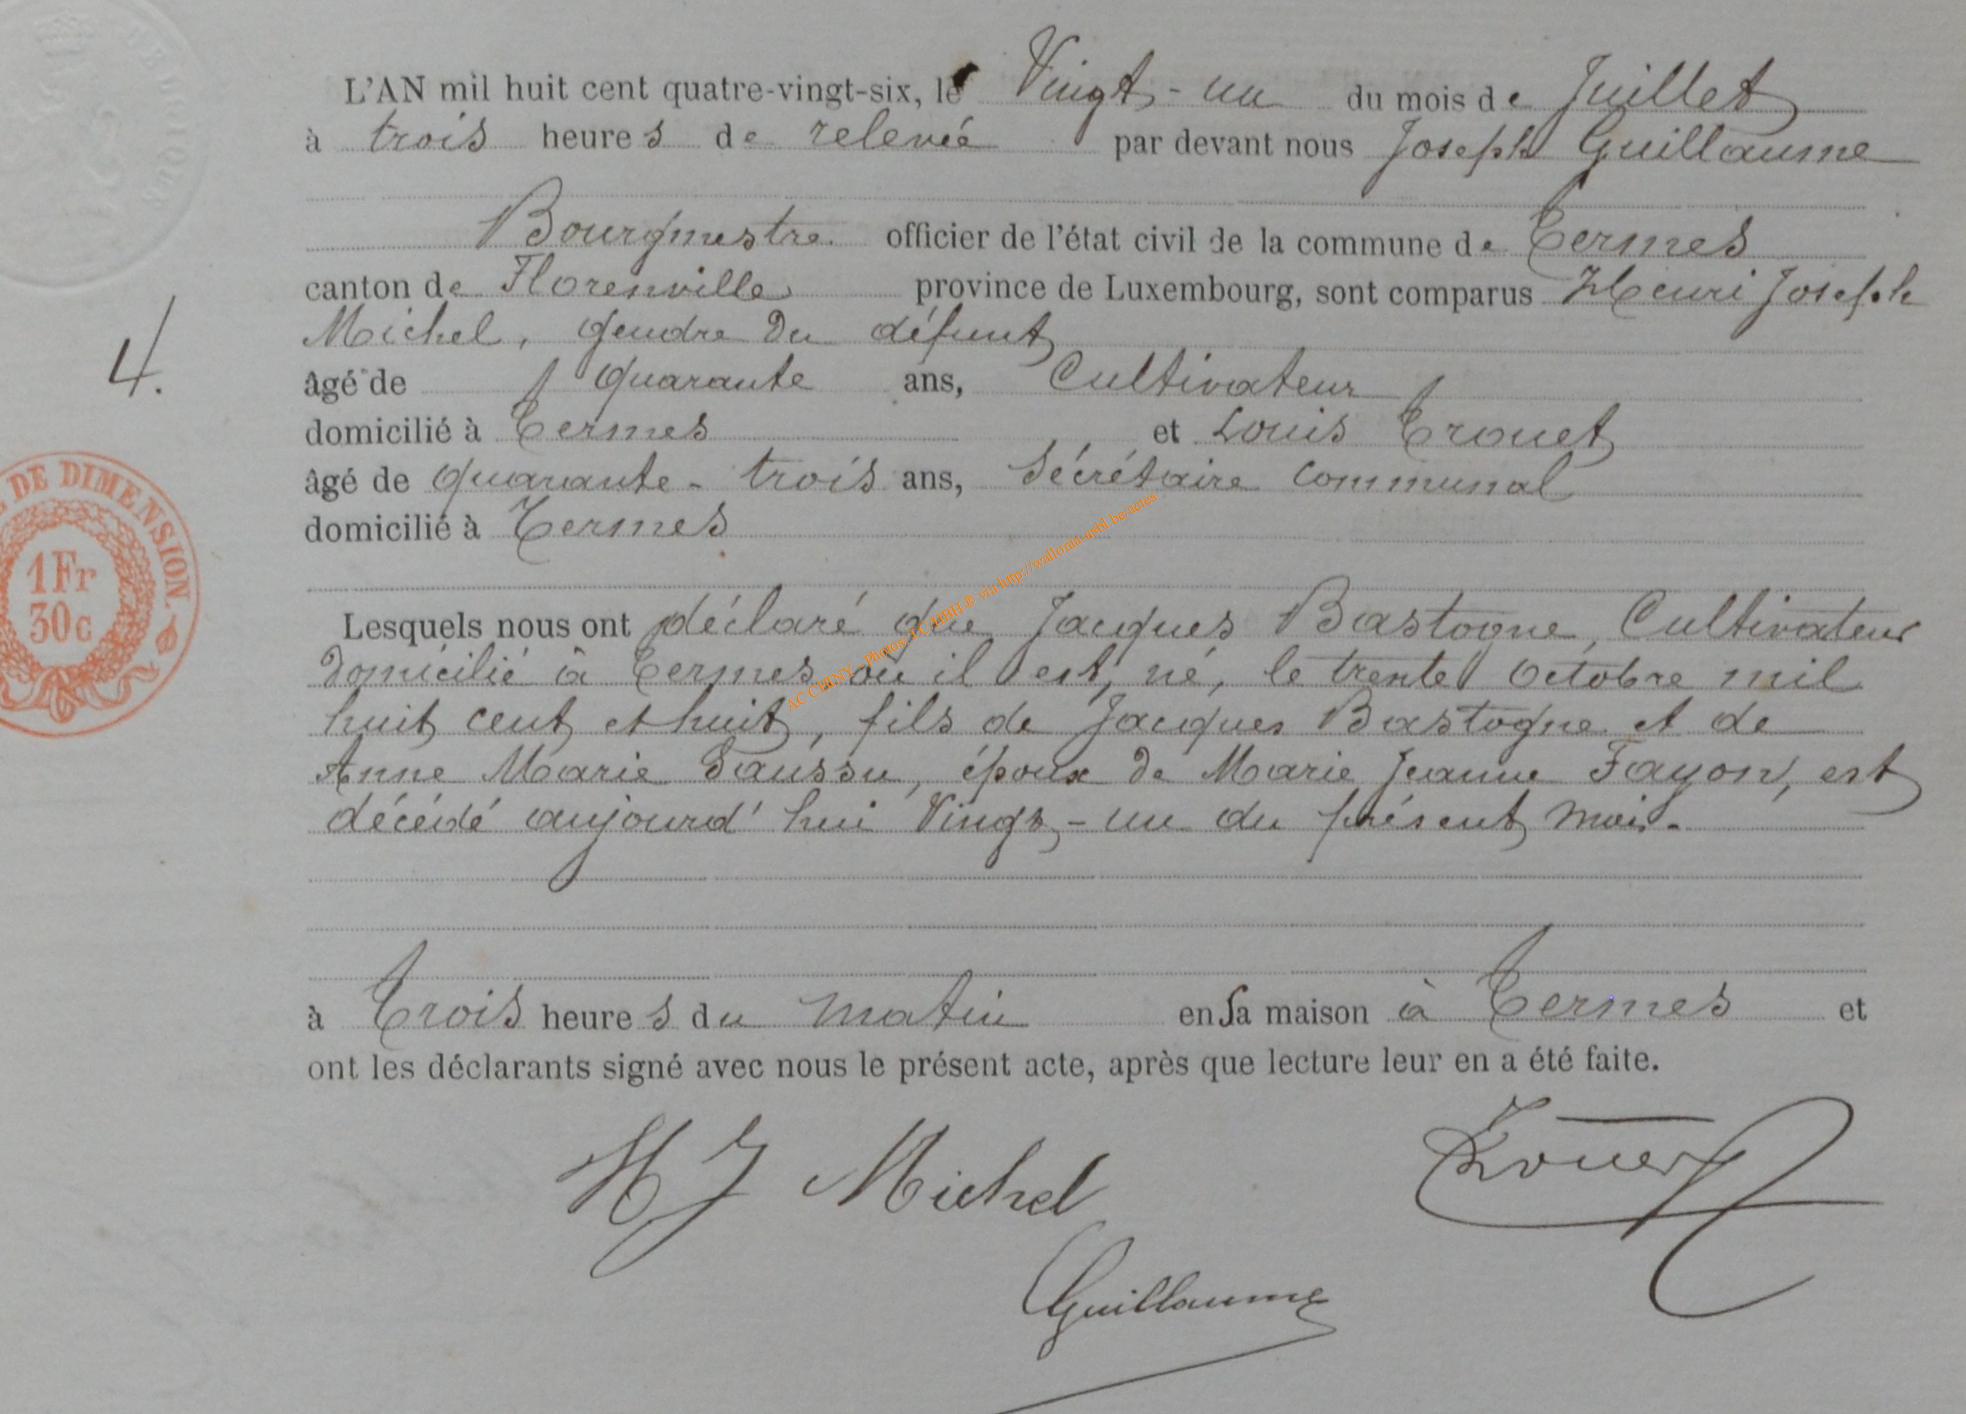 L'AN mil huit cent quatre-vingt-six, le Vingt-un du mois de Juillet
à trois heures de relevée par devant nous Joseph Guillaume
Bourgmestre officier de l'état civil de la commune de Termes
canton de Florenville province de Luxembourg, sont comparus Henri Joseph
Michel, gendre du défunt
4.
âgé de quarante ans, Cultivateur
domicilié à Termes et Louis Trouet
âgé de quarante-trois ans, Sécrétaire communal
domicilié à Termes
DE DIMENSION.
1Fr
30c
AC CHINY - Photos via http://wallonia-asbl.be/actes
Lesquels nous ont déclaré que Jacques Bastogne, Cultivateur
domicilié à Termes où il est né, le trente Octobre mil
huit cent et huit, fils de Jacques Bastogne et de
Anne Marie Saussu, époux de Marie Jeanne Fayon, est
décédé aujourd'hui Vingt-un du présent mois.
à Trois heures du matin en sa maison à Termes et
ont les déclarants signé avec nous le présent acte, après que lecture leur en a été faite.
HJ Michel
Trouet
Guillaume